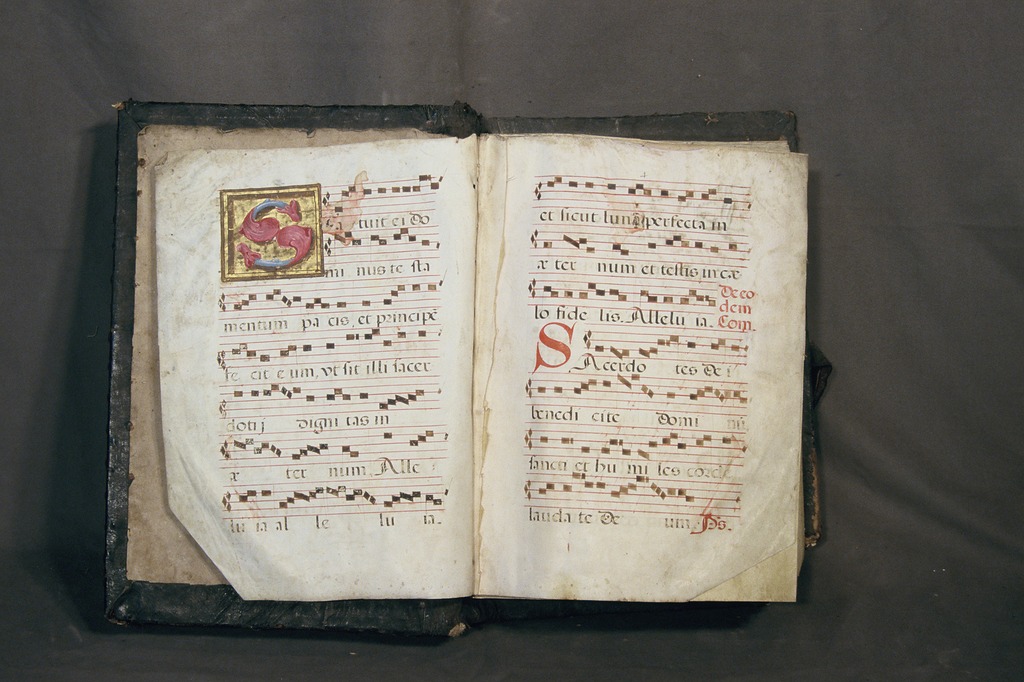 S ta tuit ei do
mi nus te sta
mentum pa cis, et principē
fe cit e um, vt sit illi sacer
dotij digni tas in
æ ter num. Alle
lu ia al le lu ia.
et sicut luna perfecta in
æ ter num et testis in cæ
lo fide lis. Allelu ia.
De co
dem
Com.
S Acerdo tes De i
benedi cite domi
sancti et hu mi les corde
lauda te De um. Ps.